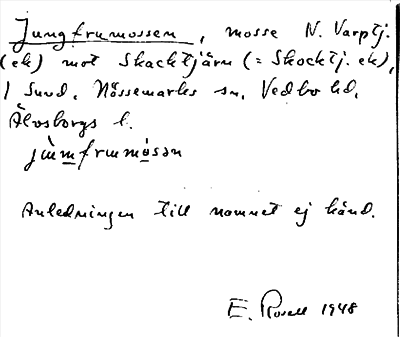 Jungfrumossen, mosse N. Varptj.
(ek) mot Skacktjärn (= Skocktj. ek),
1 Sund, Nössemarks sn, Vedbo hd,
Älvsborgs l.
jùmfrumósən
Anledningen till namnet ej känd.
E. Rosell 1948